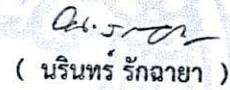 ( นรินทร์ รักฉายา )